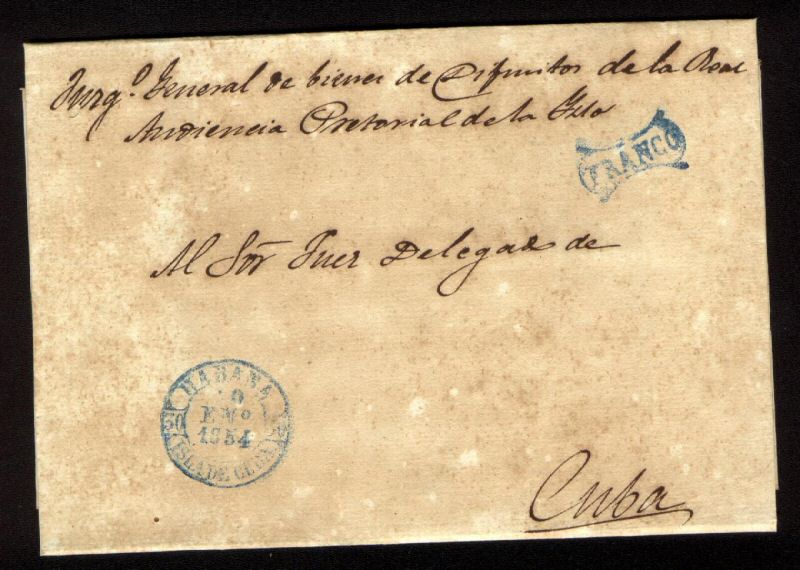 Juzgº. General de bienes de Difuntos de la Real
Audiencia Pretorial de la Isla
FRANCO
Al Sor Juez Delegado de
HABANA
ENº
1854
ISLA DE CUBA
Cuba